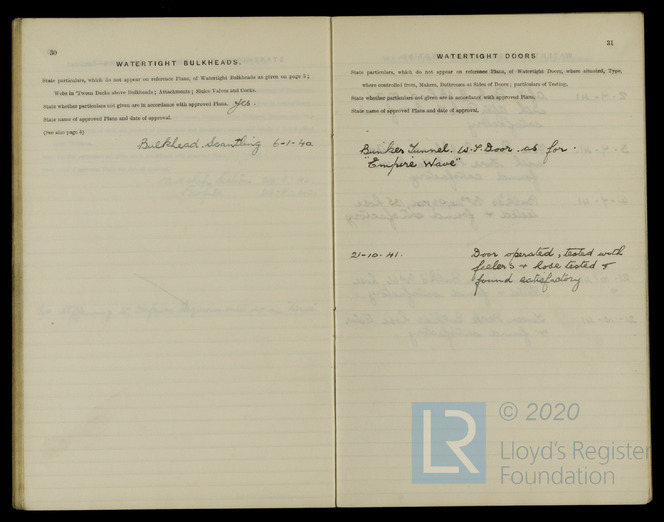 30
WATERTIGHT BULKHEADS.
State particulars, which do not appear on reference Plans, of Watertight Bulkheads as given on page 3;
Webs in 'Tween Decks above Bulkheads; Attachments; Sluice Valves and Cocks.
State whether particulars not given are in accordance with approved Plans. Yes.
State name of approved Plans and date of approval.
(See also page 3)
Bulkhead Scantling 6-1-40
31
WATERTIGHT DOORS
State particulars, which do not appear on reference Plans, of Watertight Doors, where situated, Type,
where controlled from, Makers, Buttresses at Sides of Doors; particulars of Testing.
State whether particulars not given are in accordance with approved Plans.
State name of approved Plans and date of approval.
Bunker Tunnel. W.T. Door. as for
"Empire Wave"
21-10-41. Door operated, tested with
feelers + hose tested +
found satisfactory
LR
© 2020
Lloyd's Register
Foundation